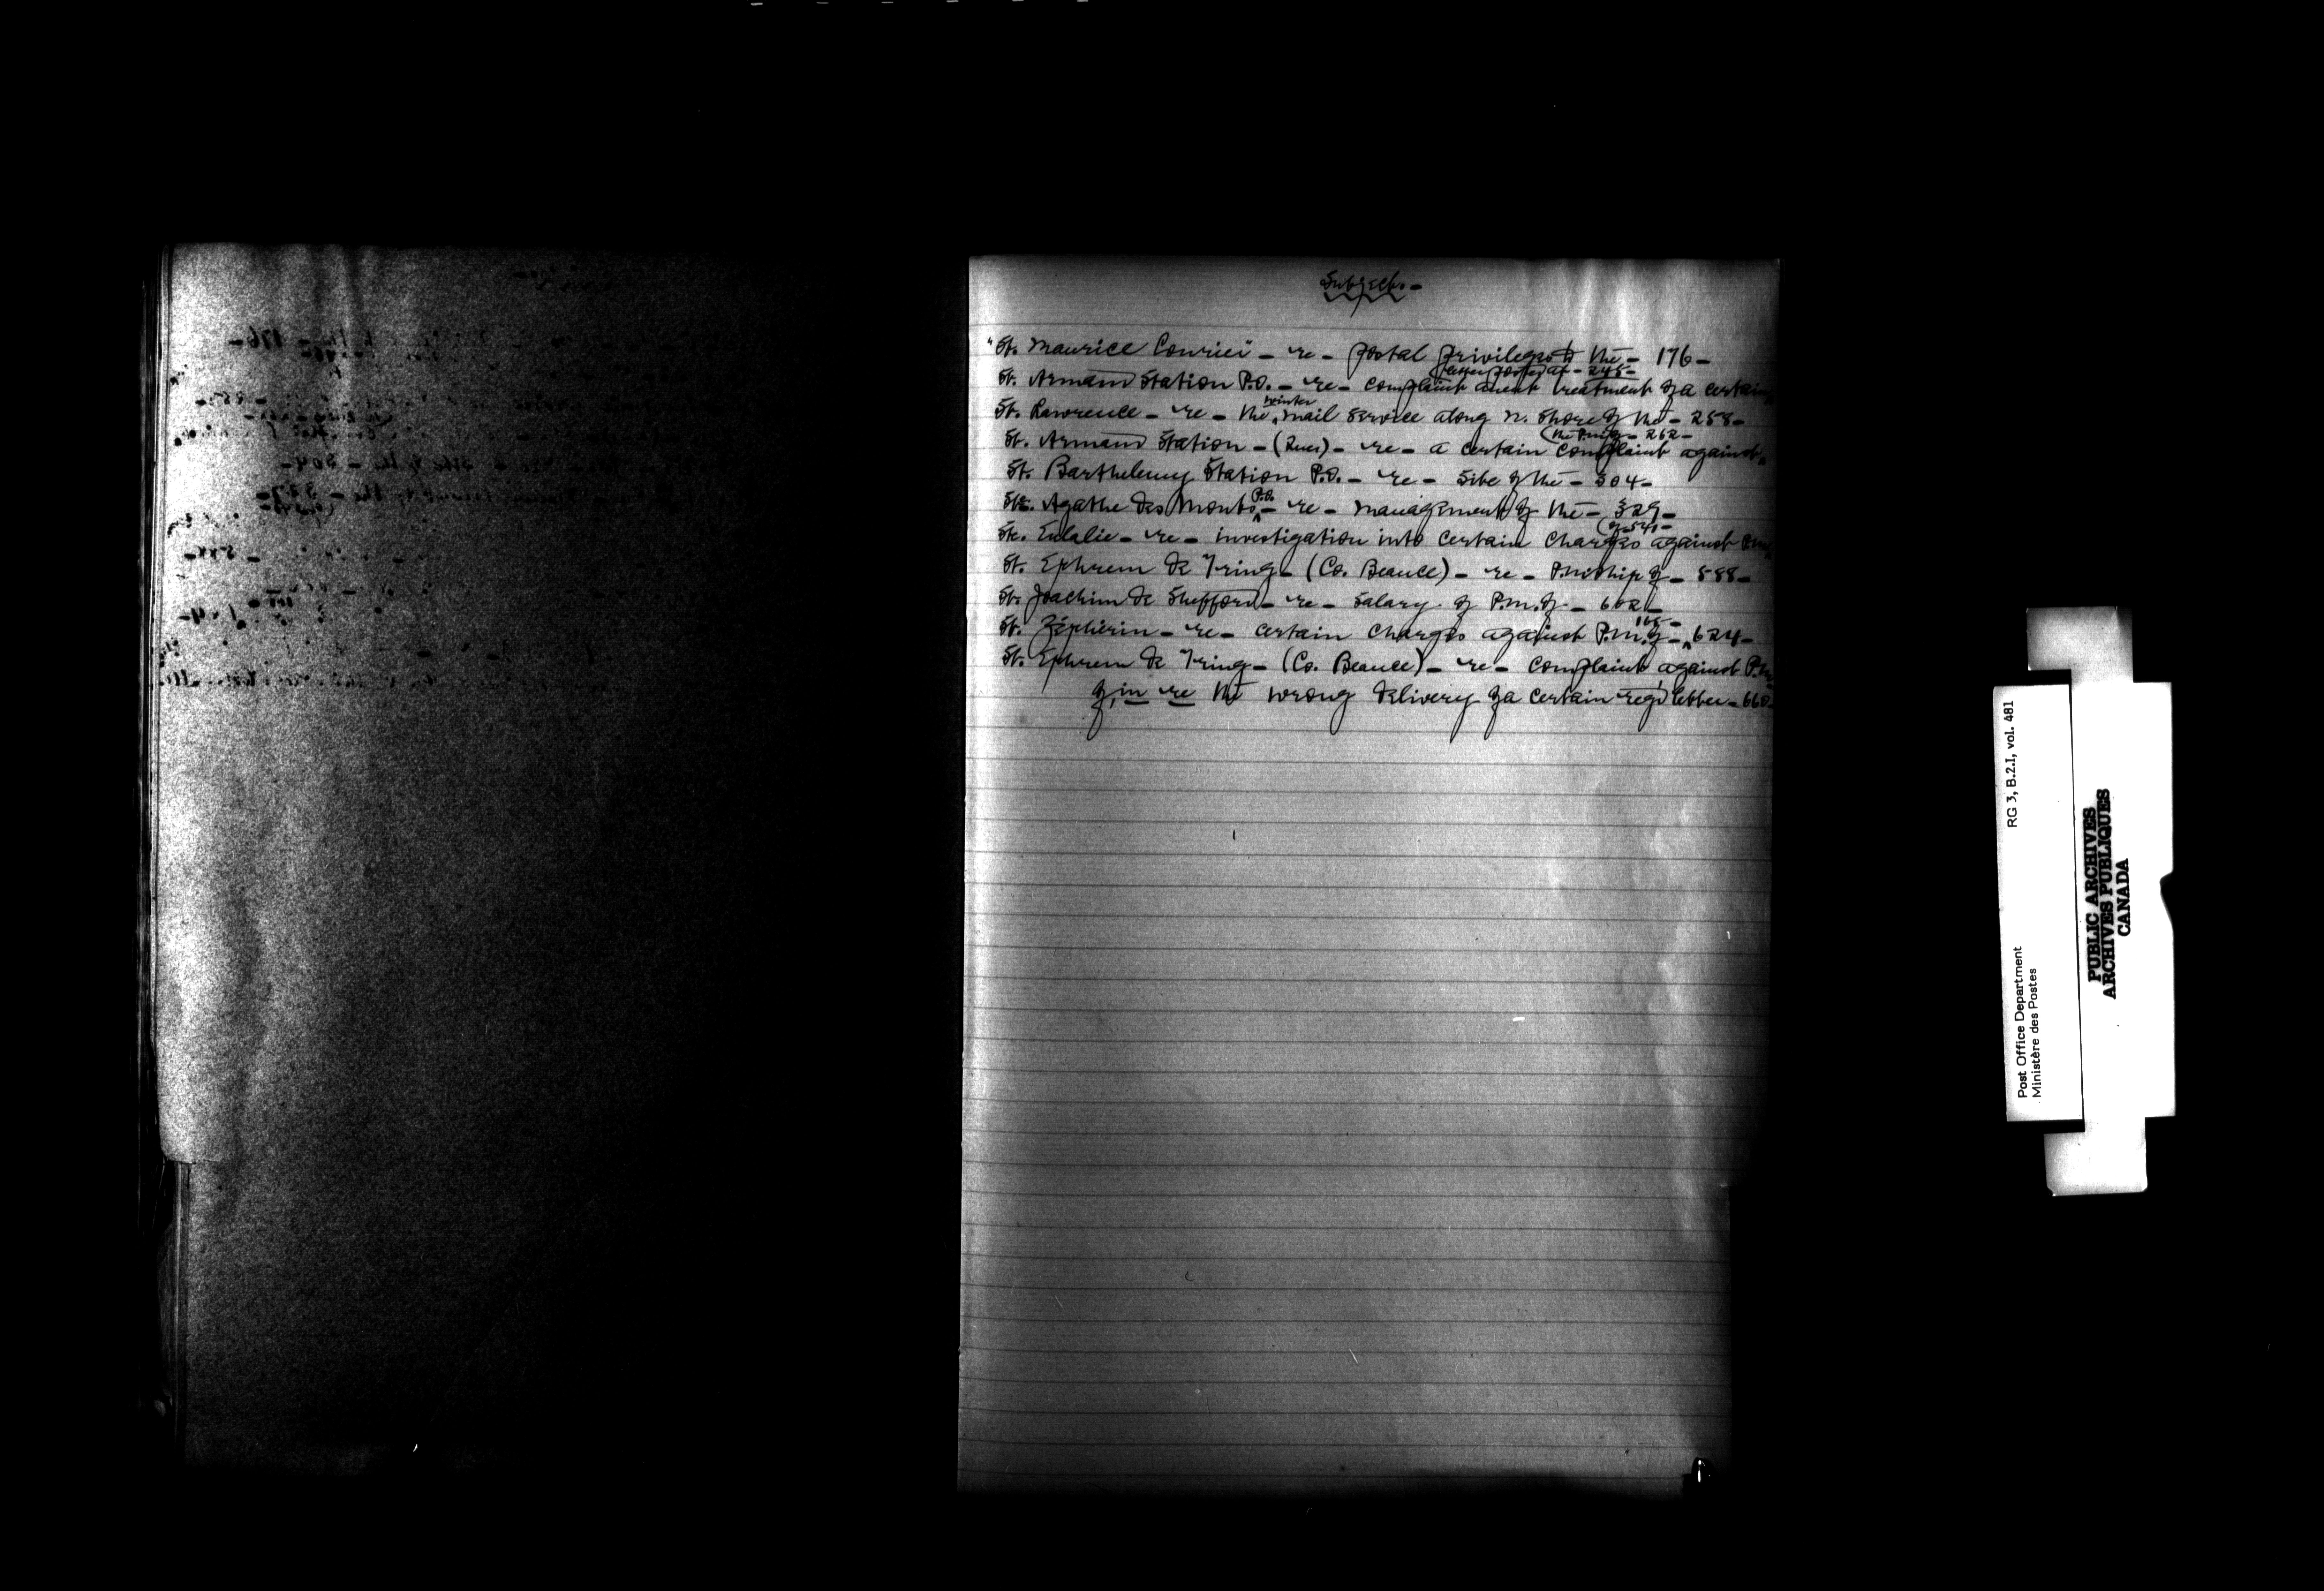 Subjects.-
"St. Maurice Courier" - re - postal privileges to the - 176 -
(letter posted at - 245 -
St. Armand Station P.O. - re - complaint anent treatment of a certain
St. Lawrence - re - the ^ winter mail service along N. Shore of the - 258 -
(the P.M. of - 262 -
St. Armand Station - (Quec) - re - a certain complaint against
St. Barthelemy Station P.O. - re - site of the - 304 -
Ste. Agathe des Monts ^ P.O. - re - management of the - 329 -
(of - 541 -
Ste. Eulalie - re - investigation into certain charges against P.M.
St. Ephrem de Tring - (Co. Beauce) - re - P.M.ship of - 588 -
St. Joachim de Shefford - re - salary of P.M. of - 602 -
St. Zéphirin - re - certain charges against P.M. of - ^ 165 - 624 -
St. Ephrem de Tring - (Co. Beauce) - re - complaint against P.M.
of, in re the wrong delivery of a certain reg'd letter - 660 -
RG 3, B.2.I, vol. 481
Post Office Department
Ministère des Postes
PUBLIC ARCHIVES
ARCHIVES PUBLIQUES
CANADA